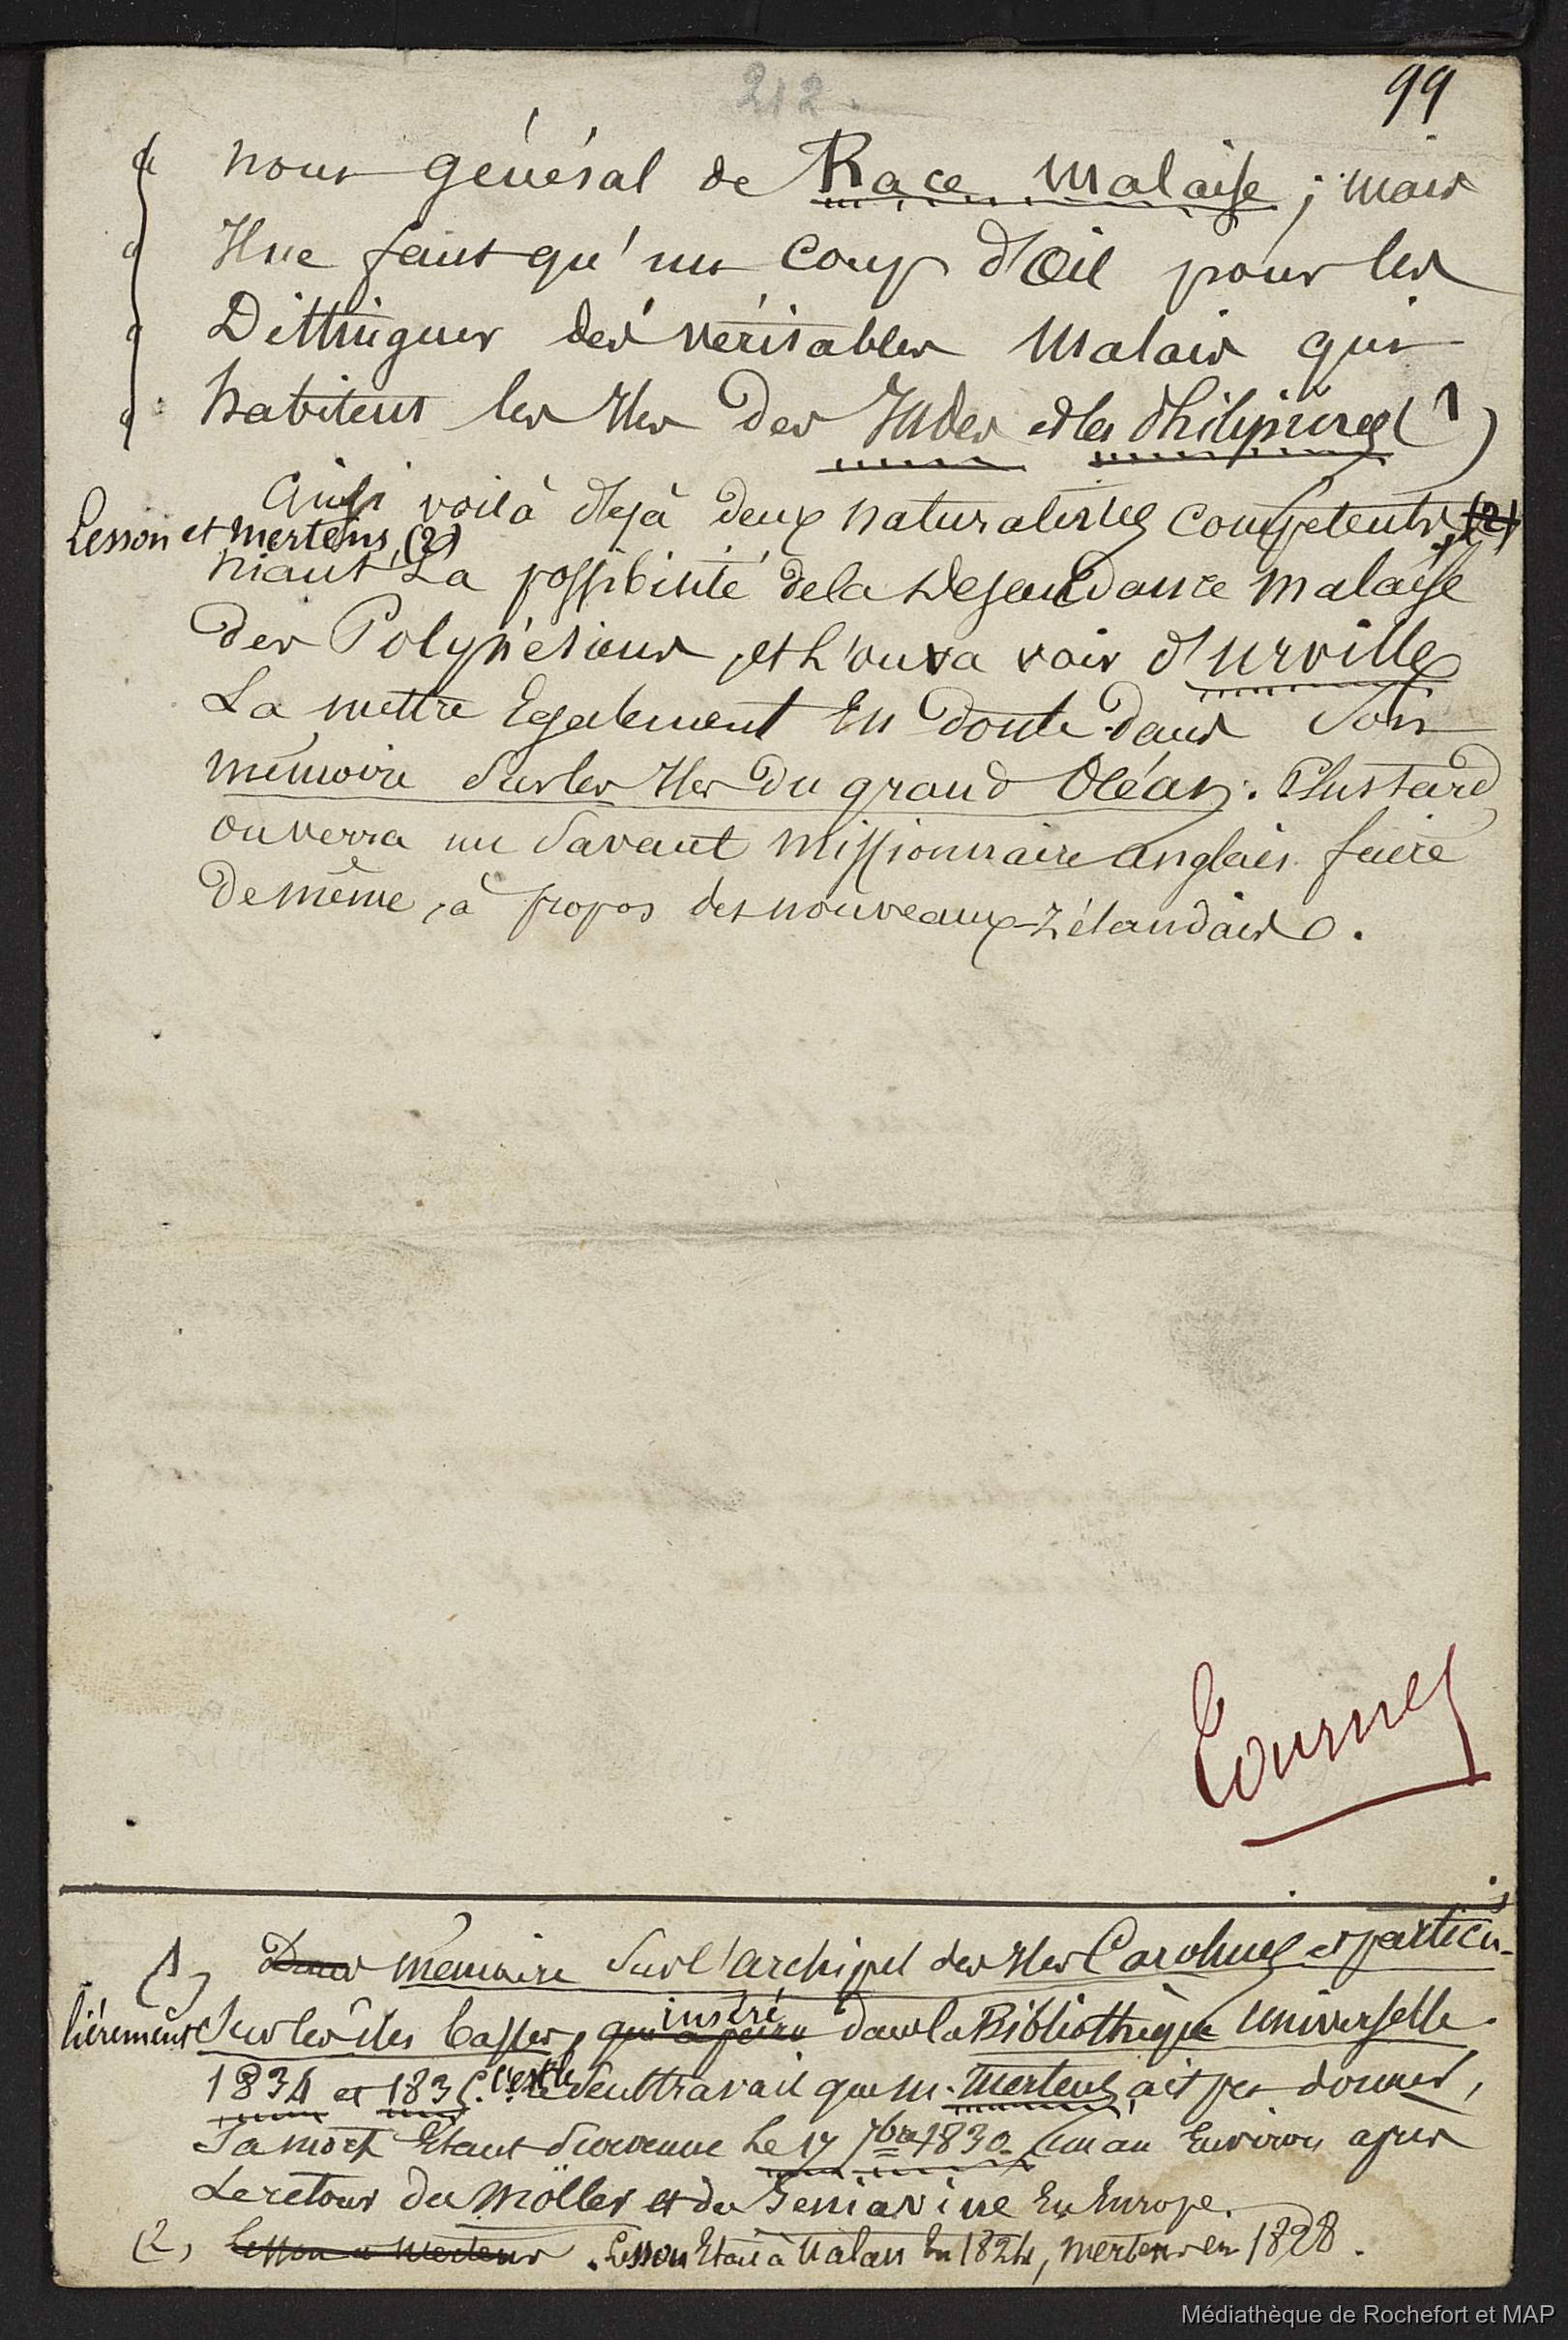 212.
99
nom général de Race malaise ; mais
Il ne faut qu'un coup d'œil pour les
Distinguer des véritables Malais qui
habitent les Iles des Indes et les Philipines (1)
Ainsi voilà déjà deux naturalistes compétents, (2)
Lesson et Mertens, (2)
niant La possibilité de la Descendance malaise
des Polynésiens, et L'on va voir d'urville
La mettre Egalement En doute dans Son
mémoire Sur les Iles Du grand Océan. Plus tard,
on verra un Savant missionnaire anglais faire
De même, à propos des nouveaux-Zélandais.
Tournez
(1) Dans mémoire Sur l'archipel des Iles Carolines et particu-
lièrement Sur les îles basses, qui a paru inséré dans la Bibliothèque Universelle.
1834 et 1835. C'est le Seul travail que M. Mertens ait pu donner,
Sa mort Etant Survenue Le 17 7bre 1830 un an Environ après
Le retour du Möller et du Seniavine En Europe.
(2) Lesson et Mertens. Lesson Etait à Ualan En 1824, Mertens en 1828.
Médiathèque de Rochefort et MAP